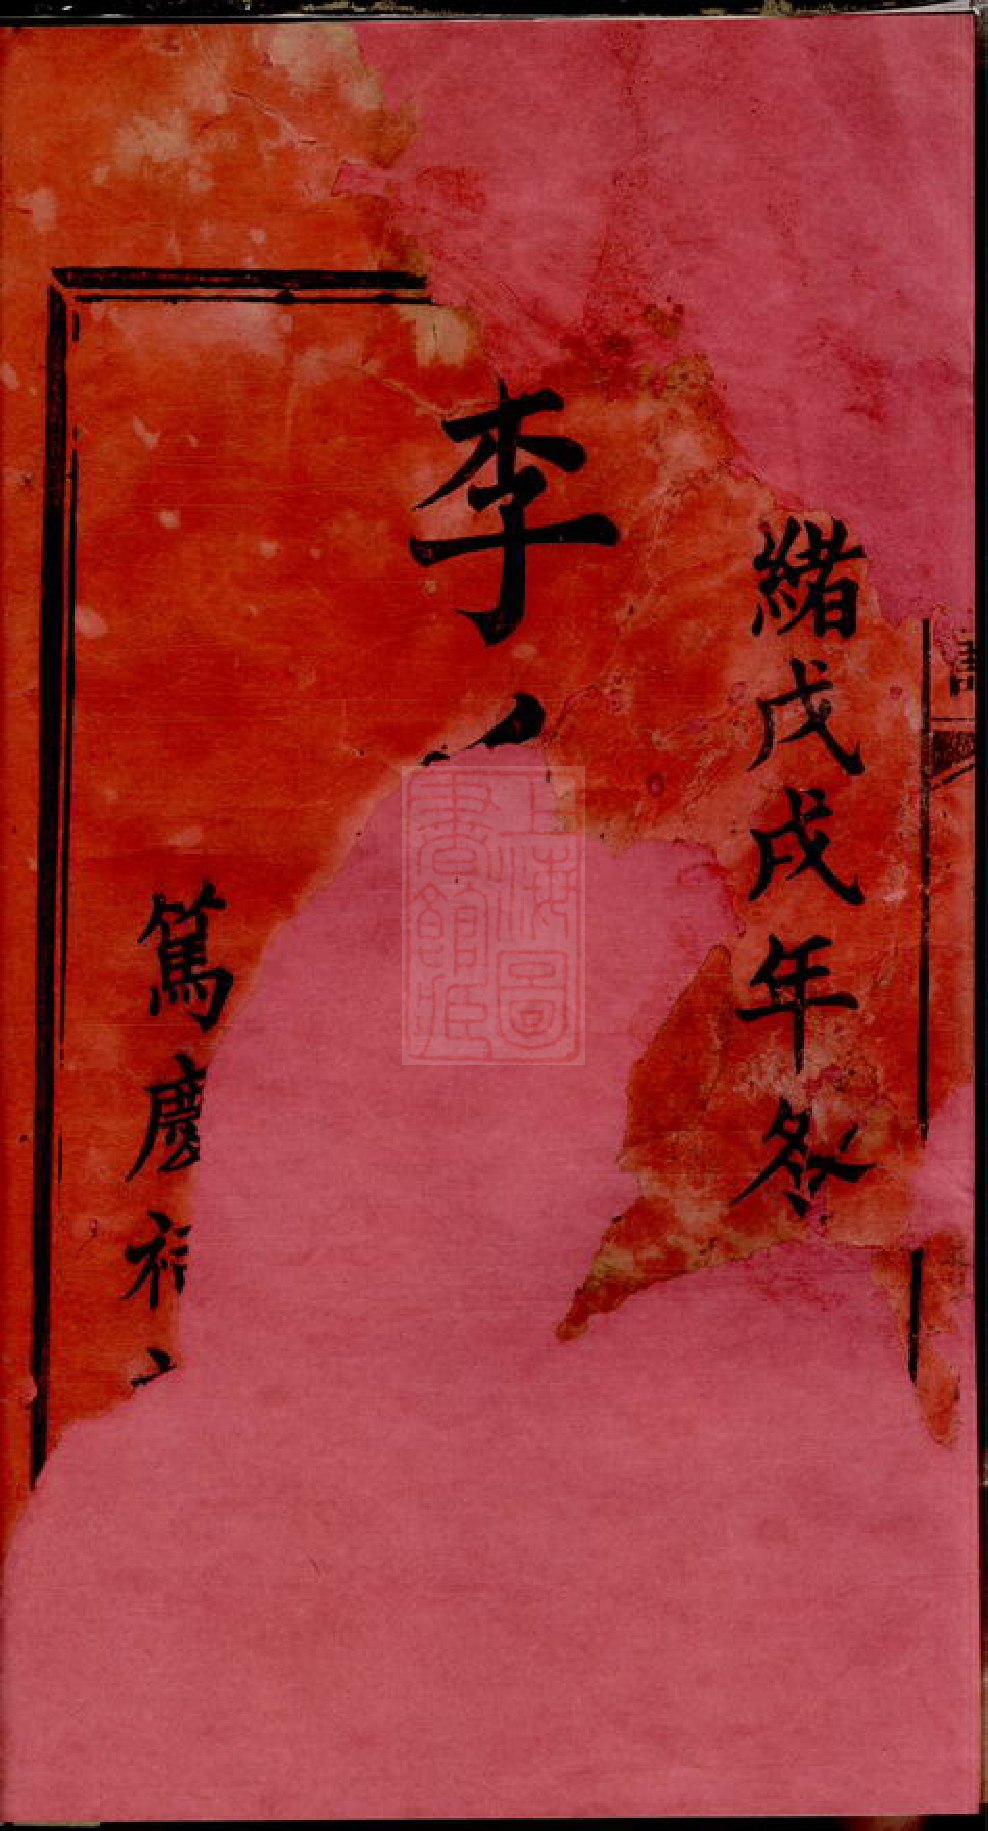 緒戊戌年冬
李
篤慶
上海圖
書館藏